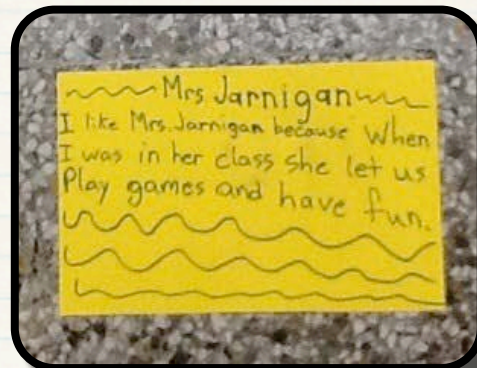 Mrs Jarnigan
I like Mrs. Jarnigan because When
I was in her class she let us
Play games and have fun.